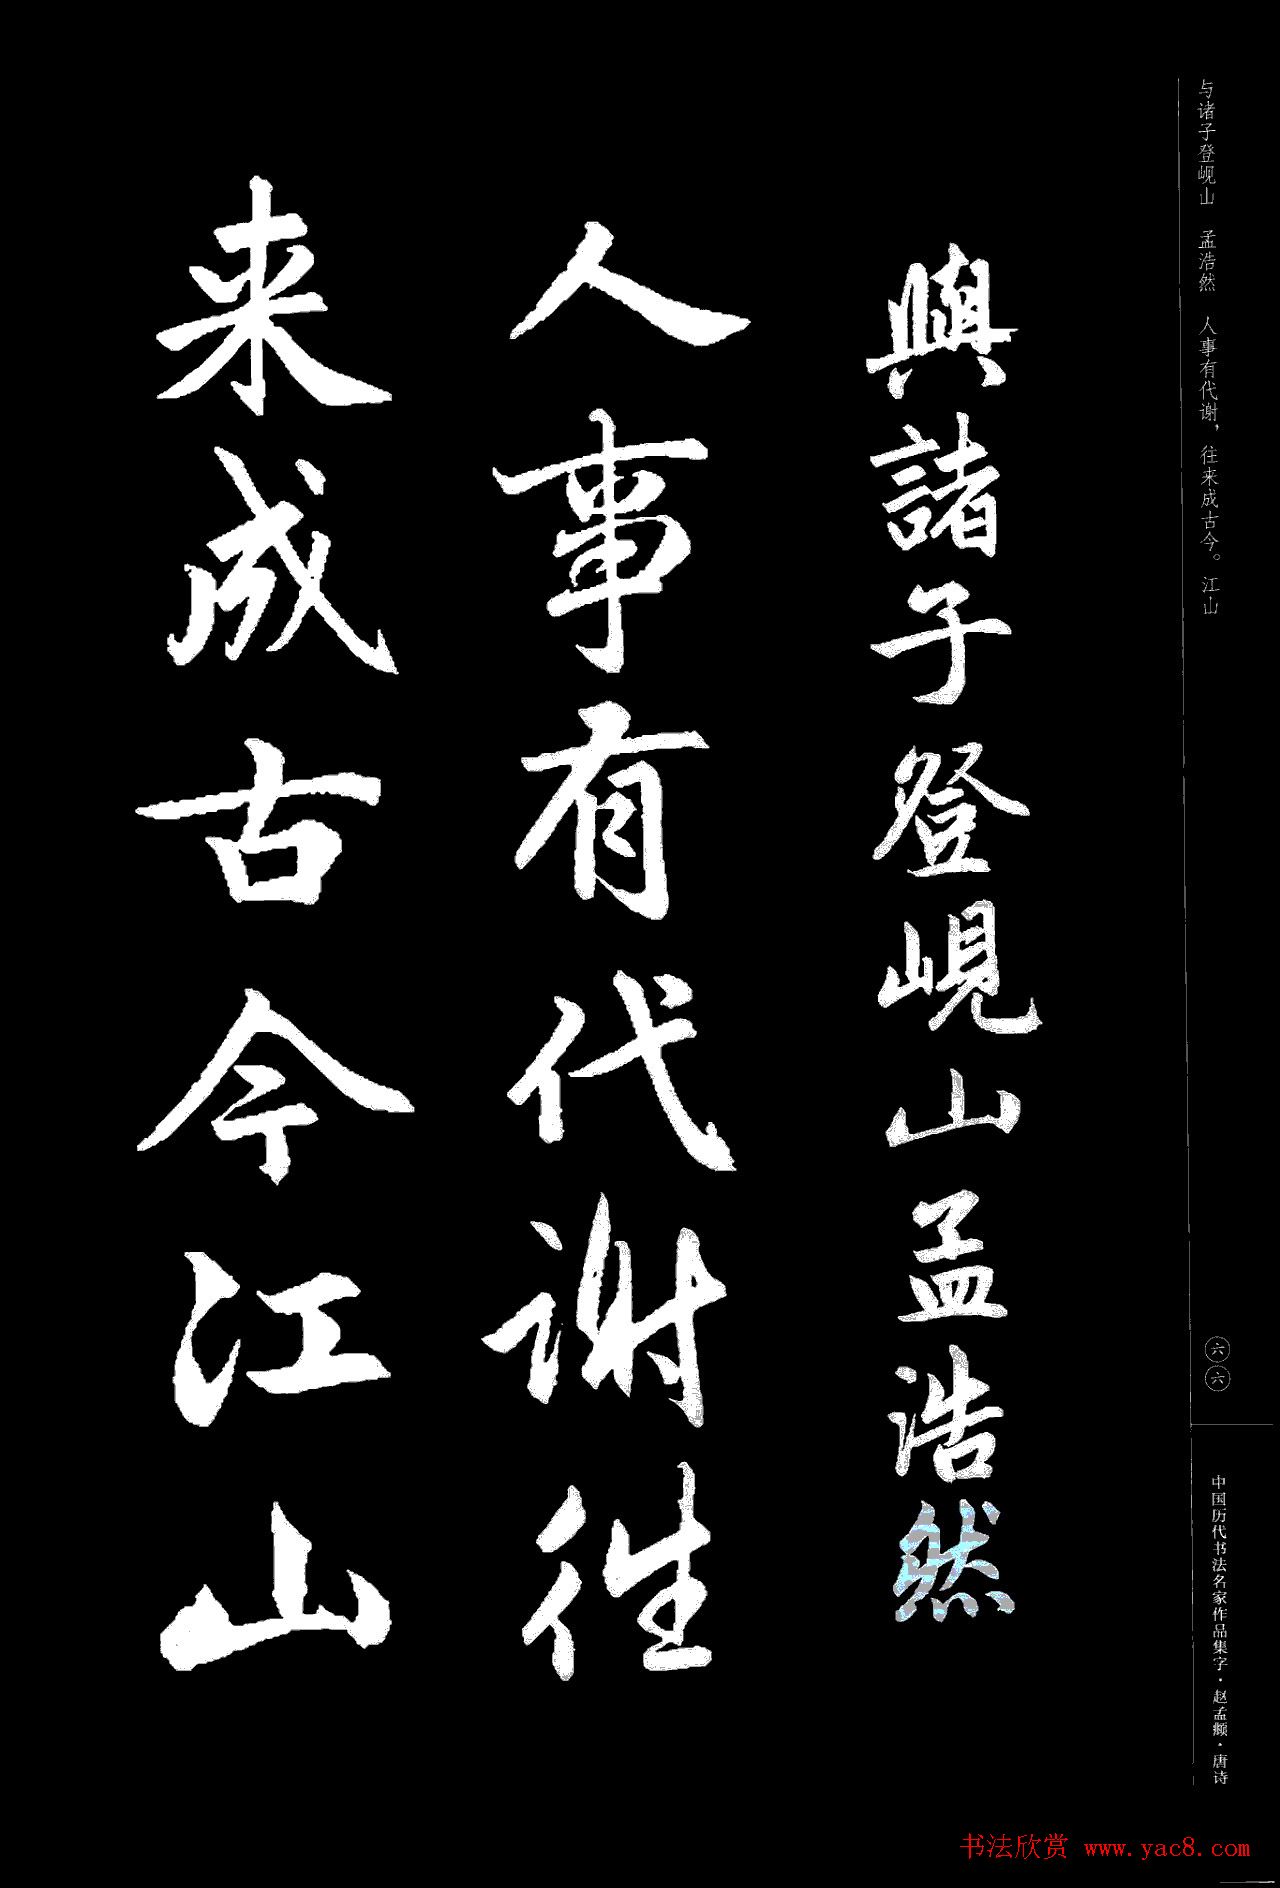 与诸子登岘山　孟浩然　人事有代谢，往来成古今。江山
與諸子登峴山孟浩然
人事有代谢往
来成古今江山
六六
中国历代书法名家作品集字·赵孟頫·唐诗
书法欣赏 www.yac8.com